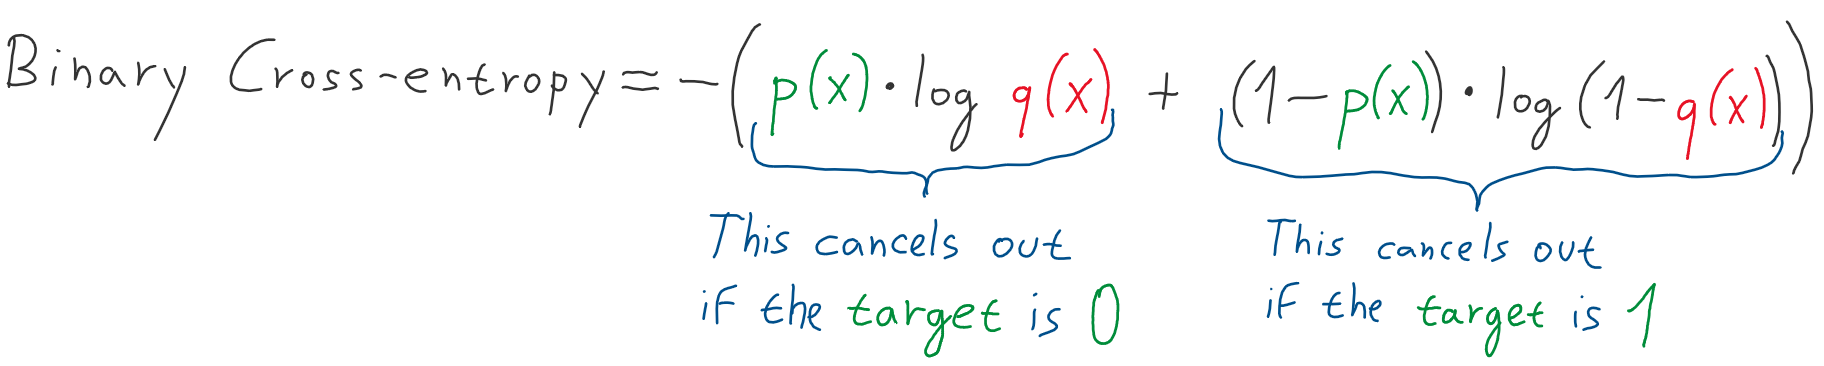 Binary Cross-entropy = -(p(x) · log q(x) + (1-p(x)) · log (1-q(x)))
This cancels out
if the target is 0
This cancels out
if the target is 1